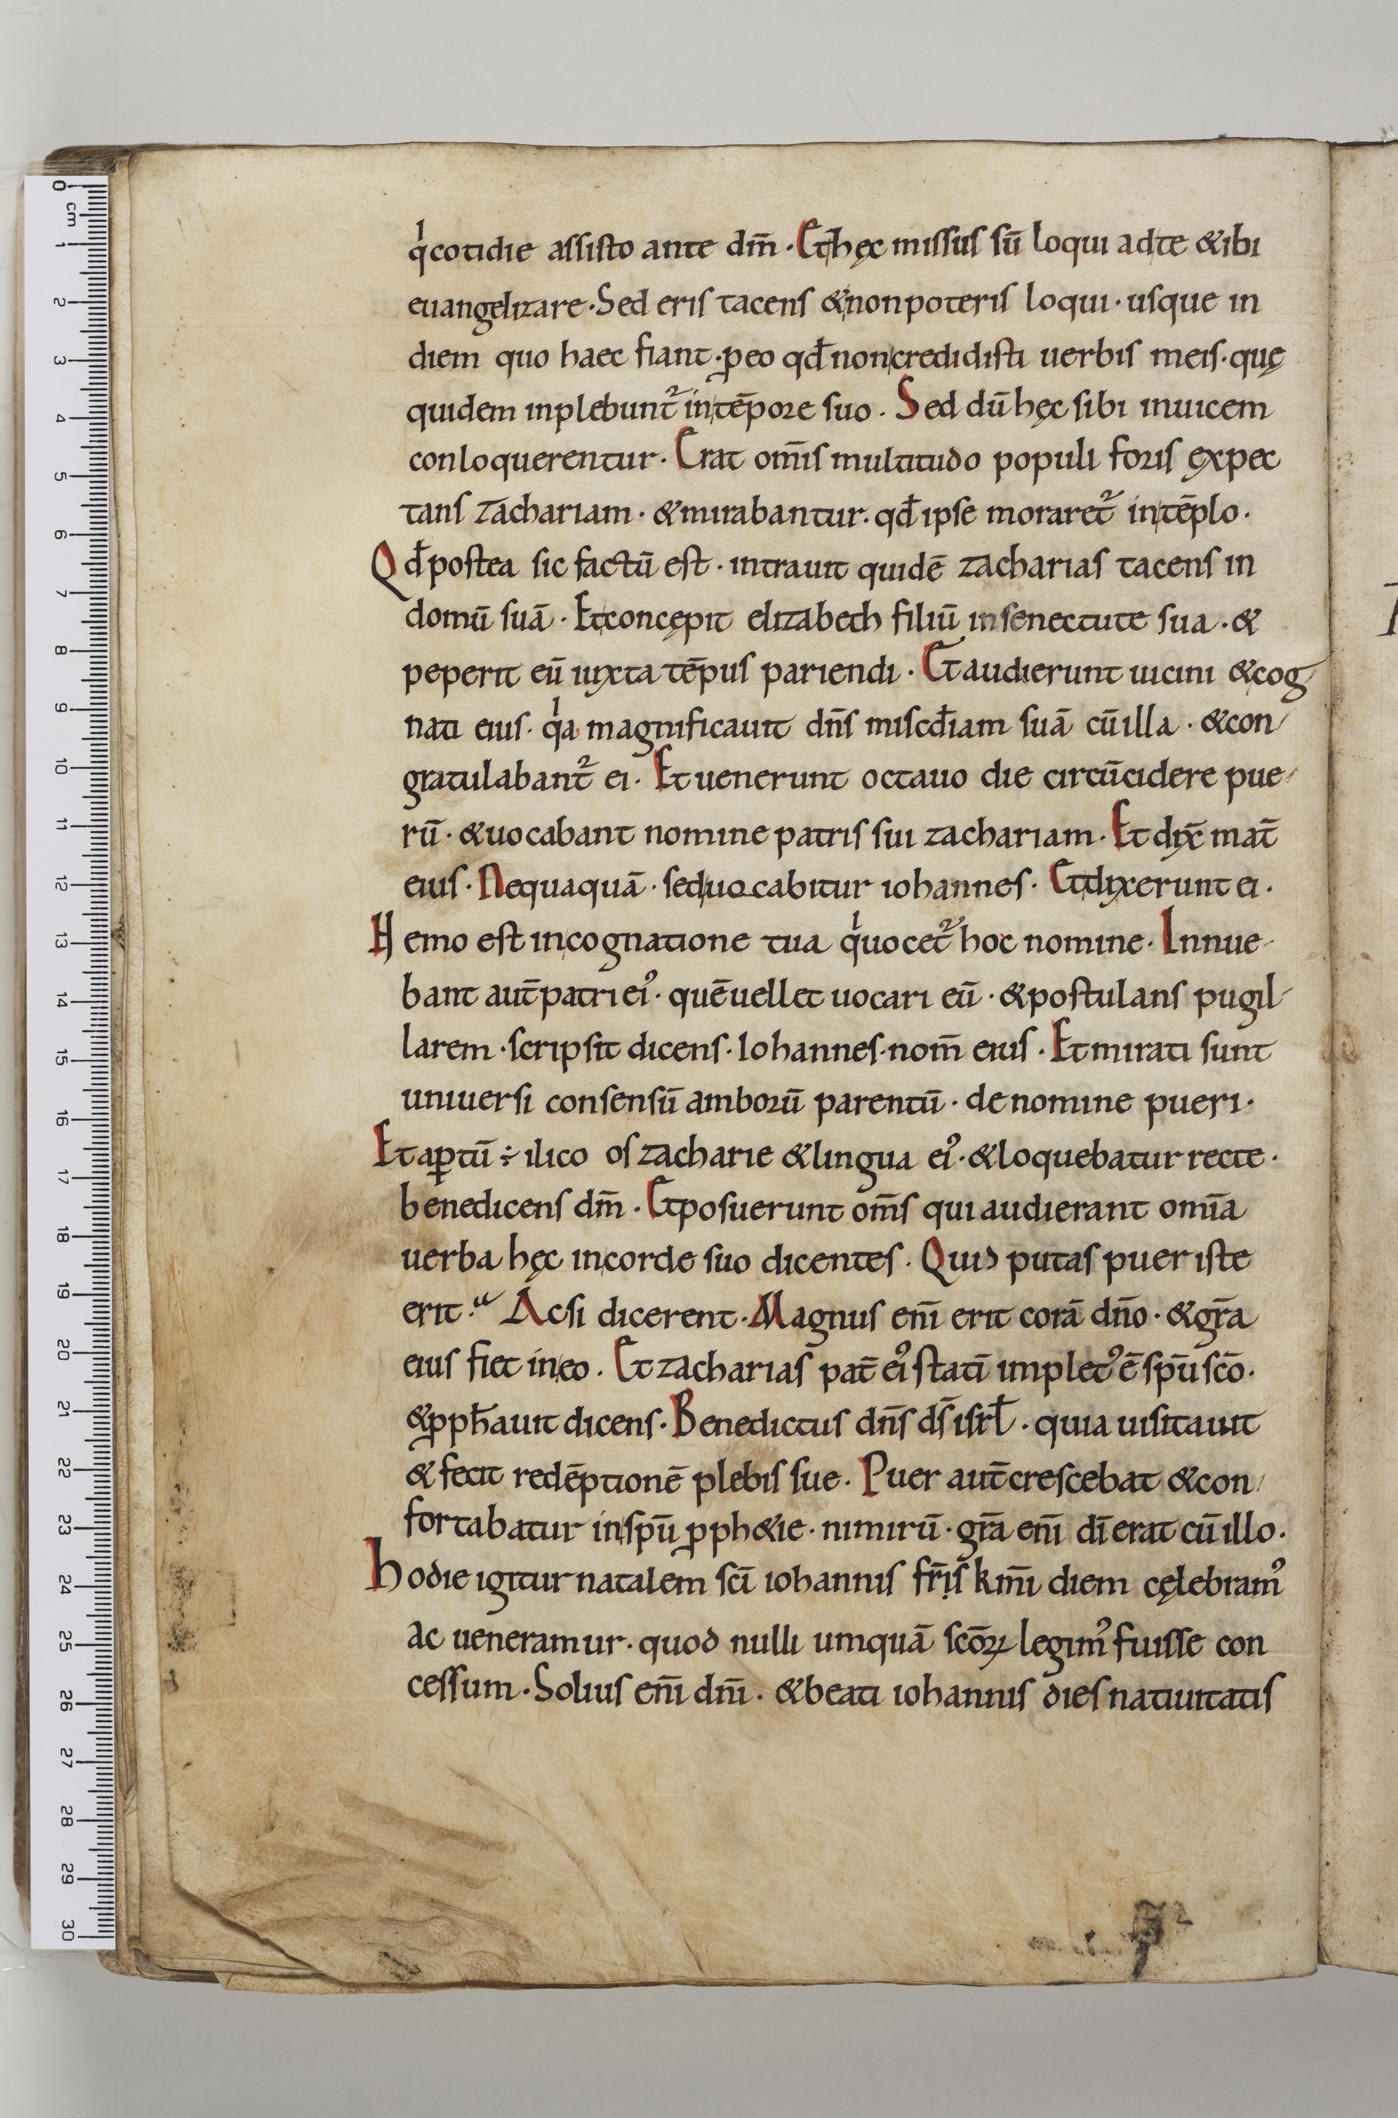 qͥ cotidie assisto ante dm̄ · Et hęc missus sū loqui ad te & ibi
euangelizare · Sed eris tacens & non poteris loqui · usque in
diem quo haec fiant · ꝓ eo qđ non credidisti uerbis meis · quę
quidem inplebunt᷑ in tēpore suo · Sed dū hęc sibi inuicem
conloquerentur · Erat om̄is multitudo populi foris expec
tans zachariam · & mirabantur · qđ ipse moraret᷑ in tēplo ·
Qđ postea sic factū est · intrauit quidē zacharias tacens in
domū suā · Et concępit elizabeth filiū in senectute sua · &
peperit eū iuxta tēpus pariendi · Et audierunt uicini & cog
nati eius · qͥa magnificauit dn̄s misc̄diam suā cū illa · & con
gratulabant᷑ ei · Et uenerunt octauo die circūcidere pue
rū · & uocabant nomine patris sui zachariam · Et dix̄ mat̄
eius · Nequaquā · sed uocabitur iohannes · Et dixerunt ei ·
Nemo est in cognatione tua qͥ uocet᷑ hoc nomine · Innue
bant aut̄ patri eiꝰ · quē uellet uocari eū · & postulans pugil
larem · scripsit dicens · Iohannes · nom̄ eius · Et mirati sunt
uniuersi consensū amborū parentū · de nomine pueri ·
Et aꝑtū ÷ ilico os zacharie & lingua eiꝰ · & loquebatur recte ·
benedicens dm̄ · Et posuerunt om̄s qui audierant om̄ia
uerba hęc in corde suo dicentes · Quid putas puer iste
erit? Ac si dicerent · Magnus eni̅ erit corā dn̄o · & gr̄a
eius fiet in eo · Et zacharias pat̄ eiꝰ statī impletꝰ ē spū scō ·
& ꝓph̄auit dicens · Benedictus dn̄s ds̄ isrł · quia uisitauit
& fecit redēptionē plebis sue · Puer aut̄ crescebat & con
fortabatur in spū ꝓph&ie · nimirū · gr̄a eni̅ dī erat cū illo ·
Hodie igitur natalem scī iohannis fr̄is km̄i diem cęlebramꝰ
ac ueneramur · quod nulli umquā scōꝝ legimꝰ fuisse con
cessum · Solius eni̅ dn̄i · & beati iohannis dies natiuitatis